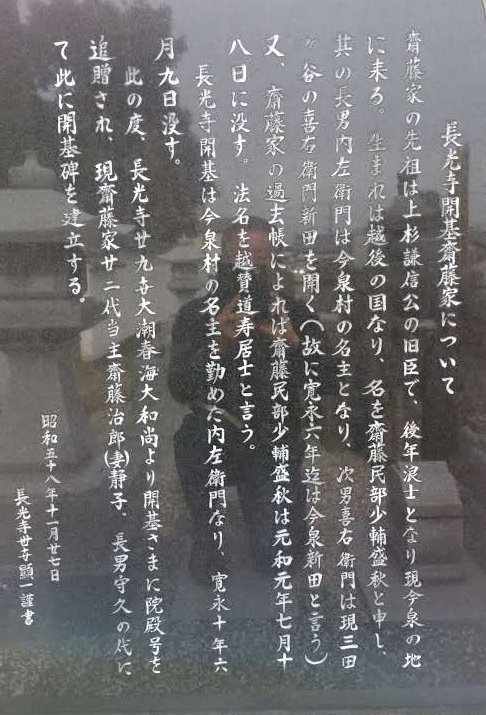 長光寺開基齋藤家について
齋藤家の先祖は上杉謙信公の旧臣で、後年浪士となり現今泉の地
に来る。生まれは越後の国なり、名を齋藤民部少輔盛秋と申し、
其の長男内左衛門は今泉村の名主となり、次男喜右衛門は現三田
ヶ谷の喜右衛門新田を開く(故に寛永六年迄は今泉新田と言う)
又、齋藤家の過去帳によれば齋藤民部少輔盛秋は元和元年七月十
八日に没す。法名を越賛道寿居士と言う。
長光寺開基は今泉村の名主を勤めた内左衛門なり、寛永十年六
月九日没す。
此の度、長光寺廿九世大潮春海大和尚より開基さまに院殿号を
追贈され、現齋藤家廿二代当主齋藤治郎(妻)静子、長男守久の代に
て此に開基碑を建立する。
昭和五十八年十一月廿七日
長光寺廿世顕一謹書